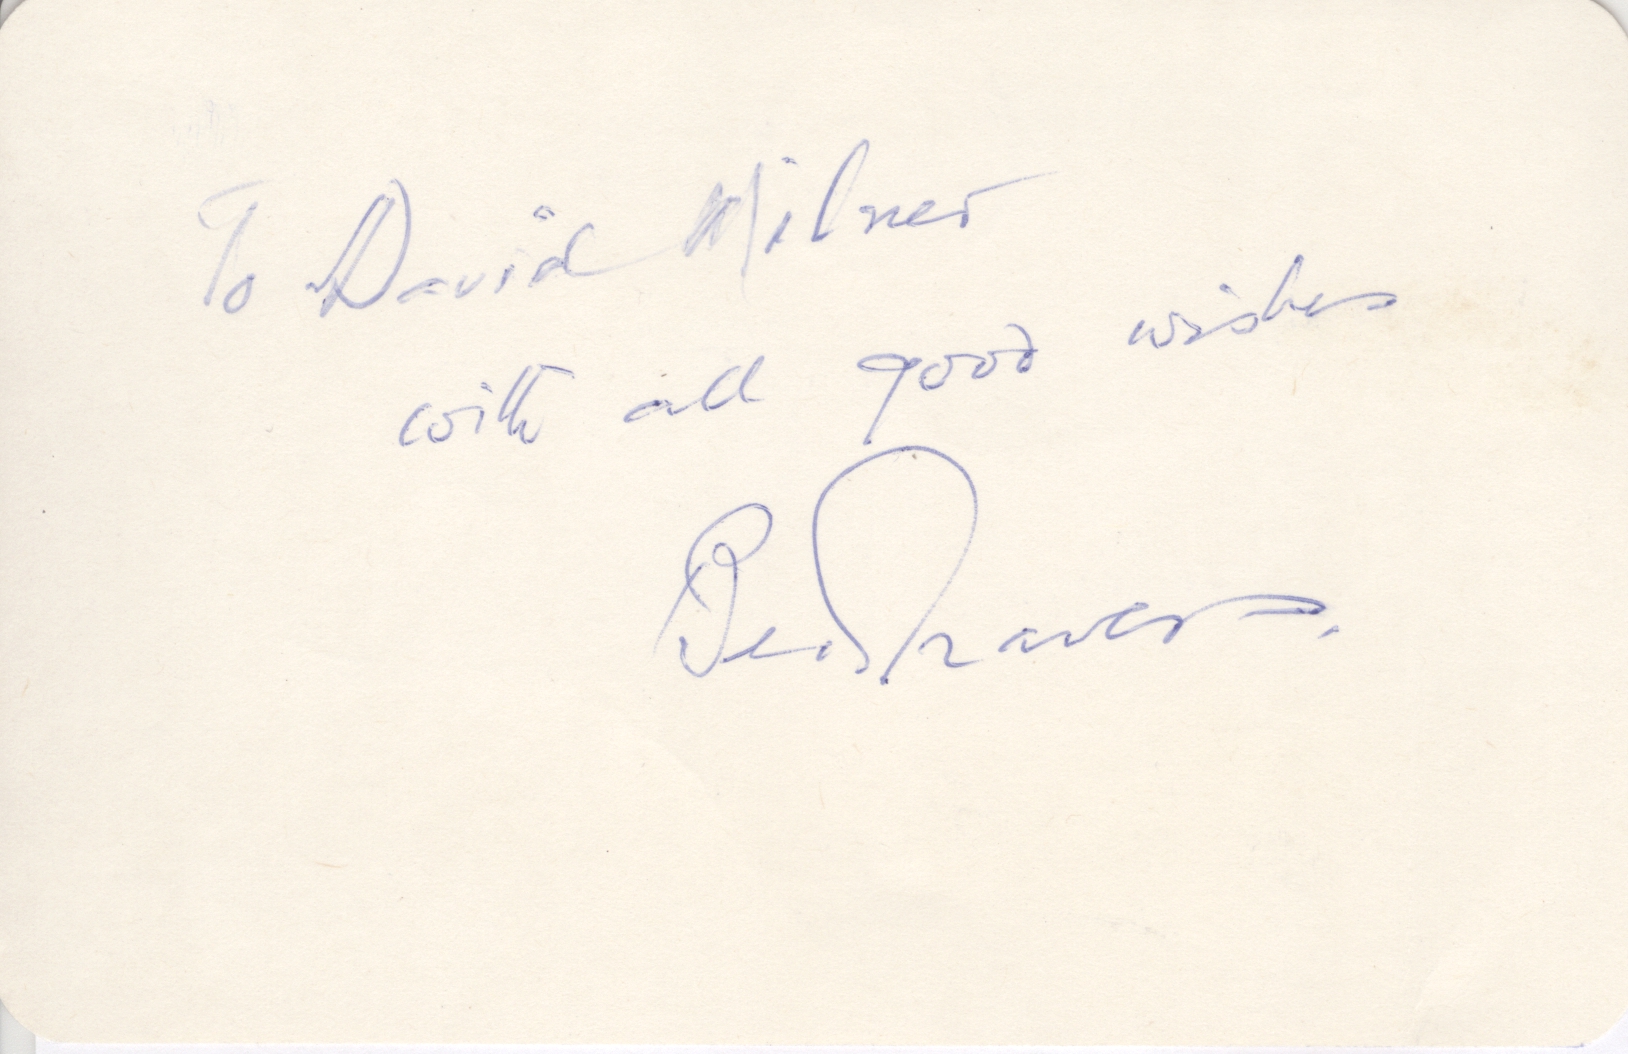 To David Milner
with all good wishes
Ben Travers.